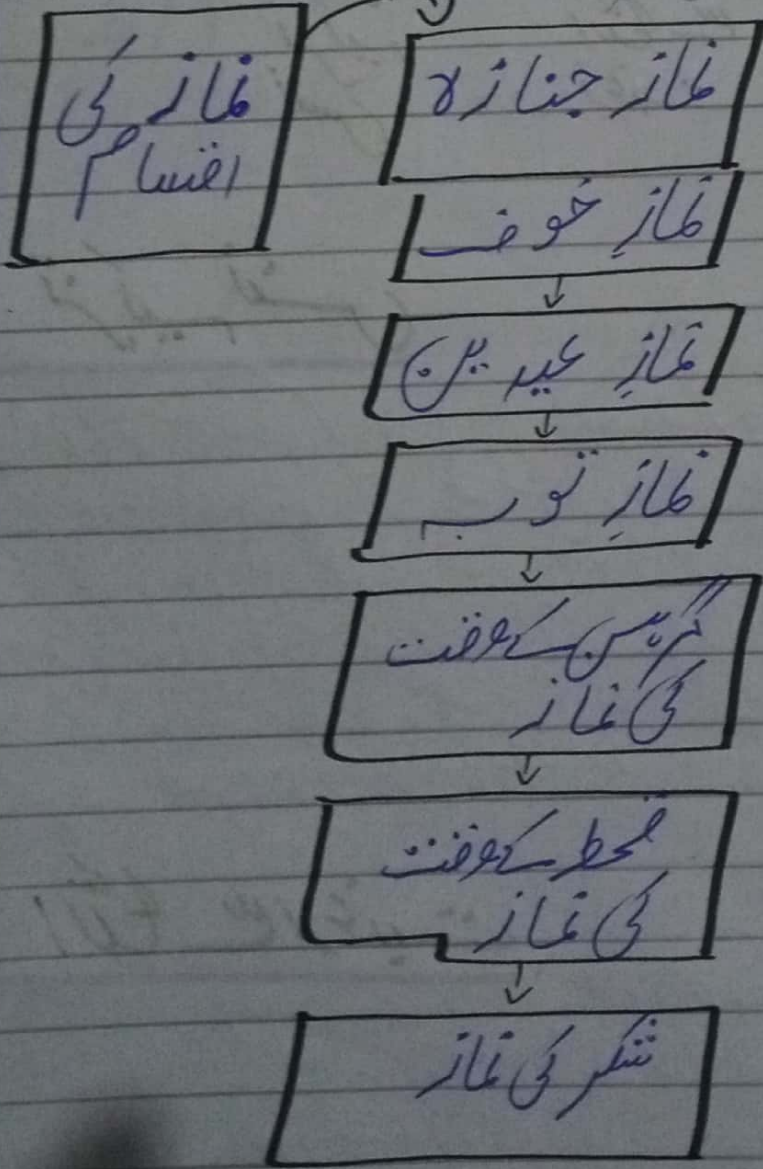 نماز کی
اقسام
نماز جنازہ
نمازِ خوف
نمازِ عیدین
نمازِ توبہ
گرہن کے وقت
کی نماز
قحط کے وقت
کی نماز
شکر کی نماز